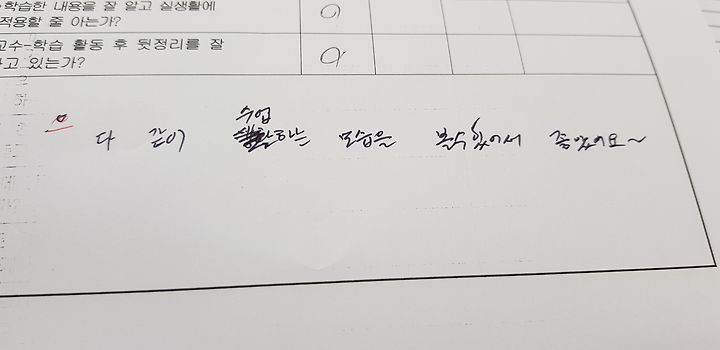 학습한 내용을 잘 알고 실생활에
적용할 줄 아는가?
교수-학습 활동 후 뒷정리를 잘
하고 있는가?
수업
다 같이 하는 모습을 볼수 있어서 좋았어요~